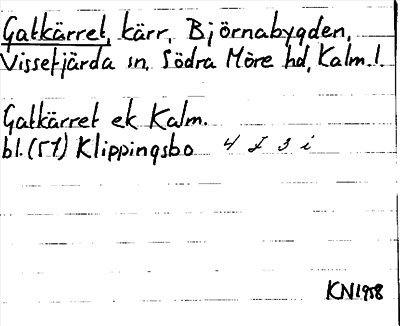 Gatkärret, kärr, Björnabygden,
Vissefjärda sn, Södra Möre hd, Kalm. l.
Gatkärret ek Kalm.
bl. (51) Klippingsbo 4 I 3 i
KN 1958